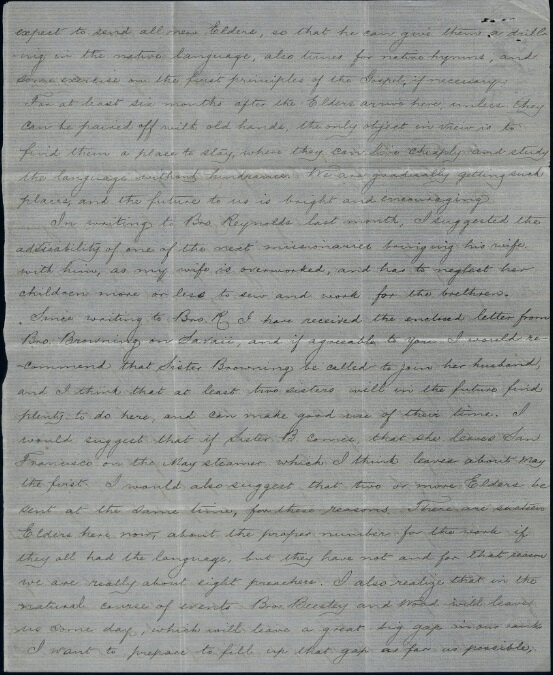 expect to send all new Elders, so that he can give them a drill-
ing in the native language, also tunes for native hymns, and
some exercise on the first principles of the Gospel, if necessary.
For at least six months after the Elders arrive here, unless they
can be paired off with old hands, the only object in view is to
find them a place to stay, where they can live cheaply and study
the language without hindrance. We are gradually getting such
places, and the future to us is bright and encouraging.
In writing to Bro. Reynolds last month, I suggested the
advisability of one of the next missionaries bringing his wife
with him, as my wife is overworked, and has to neglect her
children more or less to sew and work for the brethren.
Since writing to Bro. R I have received the enclosed letter from
Bro. Browning on Savaii, and if agreeable to you I would re-
commend that Sister Browning be called to join her husband,
and I think that at least two sisters will in the future find
plenty to do here, and can make good use of their time. I
would suggest that if Sister B comes, that she leaves San
Francisco on the May steamer which I think leaves about May
the first. I would also suggest that two or more Elders be
sent at the same time, for these reasons. There are sixteen
Elders here now, about the proper number for the work if
they all had the language, but they have not and for that reason
we are really about eight preachers. I also realize that in the
natural course of events Bros. Beesley and Wood will leave
us some day, which will leave a great big gap in our ranks
I want to prepare to fill up that gap as far as possible,